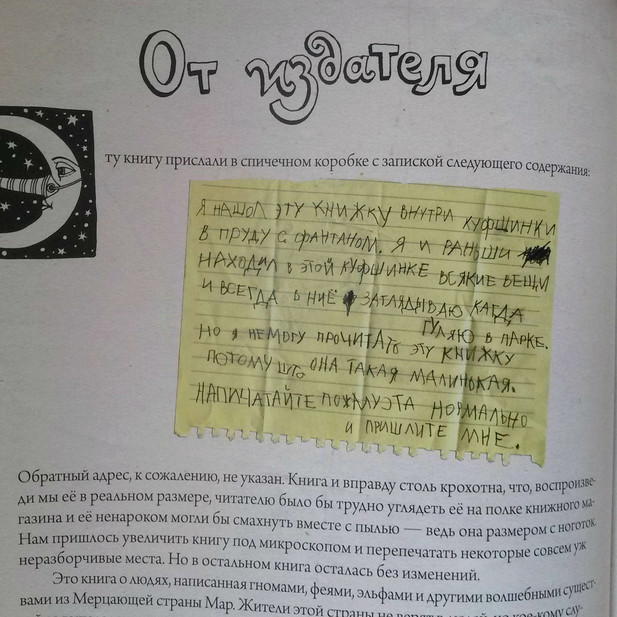 От издателя
ту книгу прислали в спичечном коробке с запиской следующего содержания:
Я НАШОЛ ЭТУ КНИЖКУ ВНУТРИ КУФШИНКИ
В ПРУДУ С ФАНТАНОМ. Я И РАНЬШИ
НАХОДИЛ В ЭТОЙ КУФШИНКЕ ВСЯКИЕ ВЕЩИ
И ВСЕГДА В НИЁ ЗАГЛЯДЫВАЮ КАГДА
ГУЛЯЮ В ПАРКЕ.
НО Я НЕМОГУ ПРОЧИТАТЬ ЭТУ КНИЖКУ
ПОТОМУ ШТО ОНА ТАКАЯ МАЛИНЬКАЯ.
НАПИЧАТАЙТЕ ПОЖМУЭТА НОРМАЛЬНО
И ПРИШЛИТЕ МНЕ.
Обратный адрес, к сожалению, не указан. Книга и вправду столь крохотна, что, воспроизве-
ди мы её в реальном размере, читателю было бы трудно углядеть её на полке книжного ма-
газина и её ненароком могли бы смахнуть вместе с пылью — ведь она размером с ноготок.
Нам пришлось увеличить книгу под микроскопом и перепечатать некоторые совсем уж
неразборчивые места. Но в остальном книга осталась без изменений.
Это книга о людях, написанная гномами, феями, эльфами и другими волшебными сущест-
вами из Мерцающей страны Мар. Жители этой страны не верят в людей, но кое-кому слу-